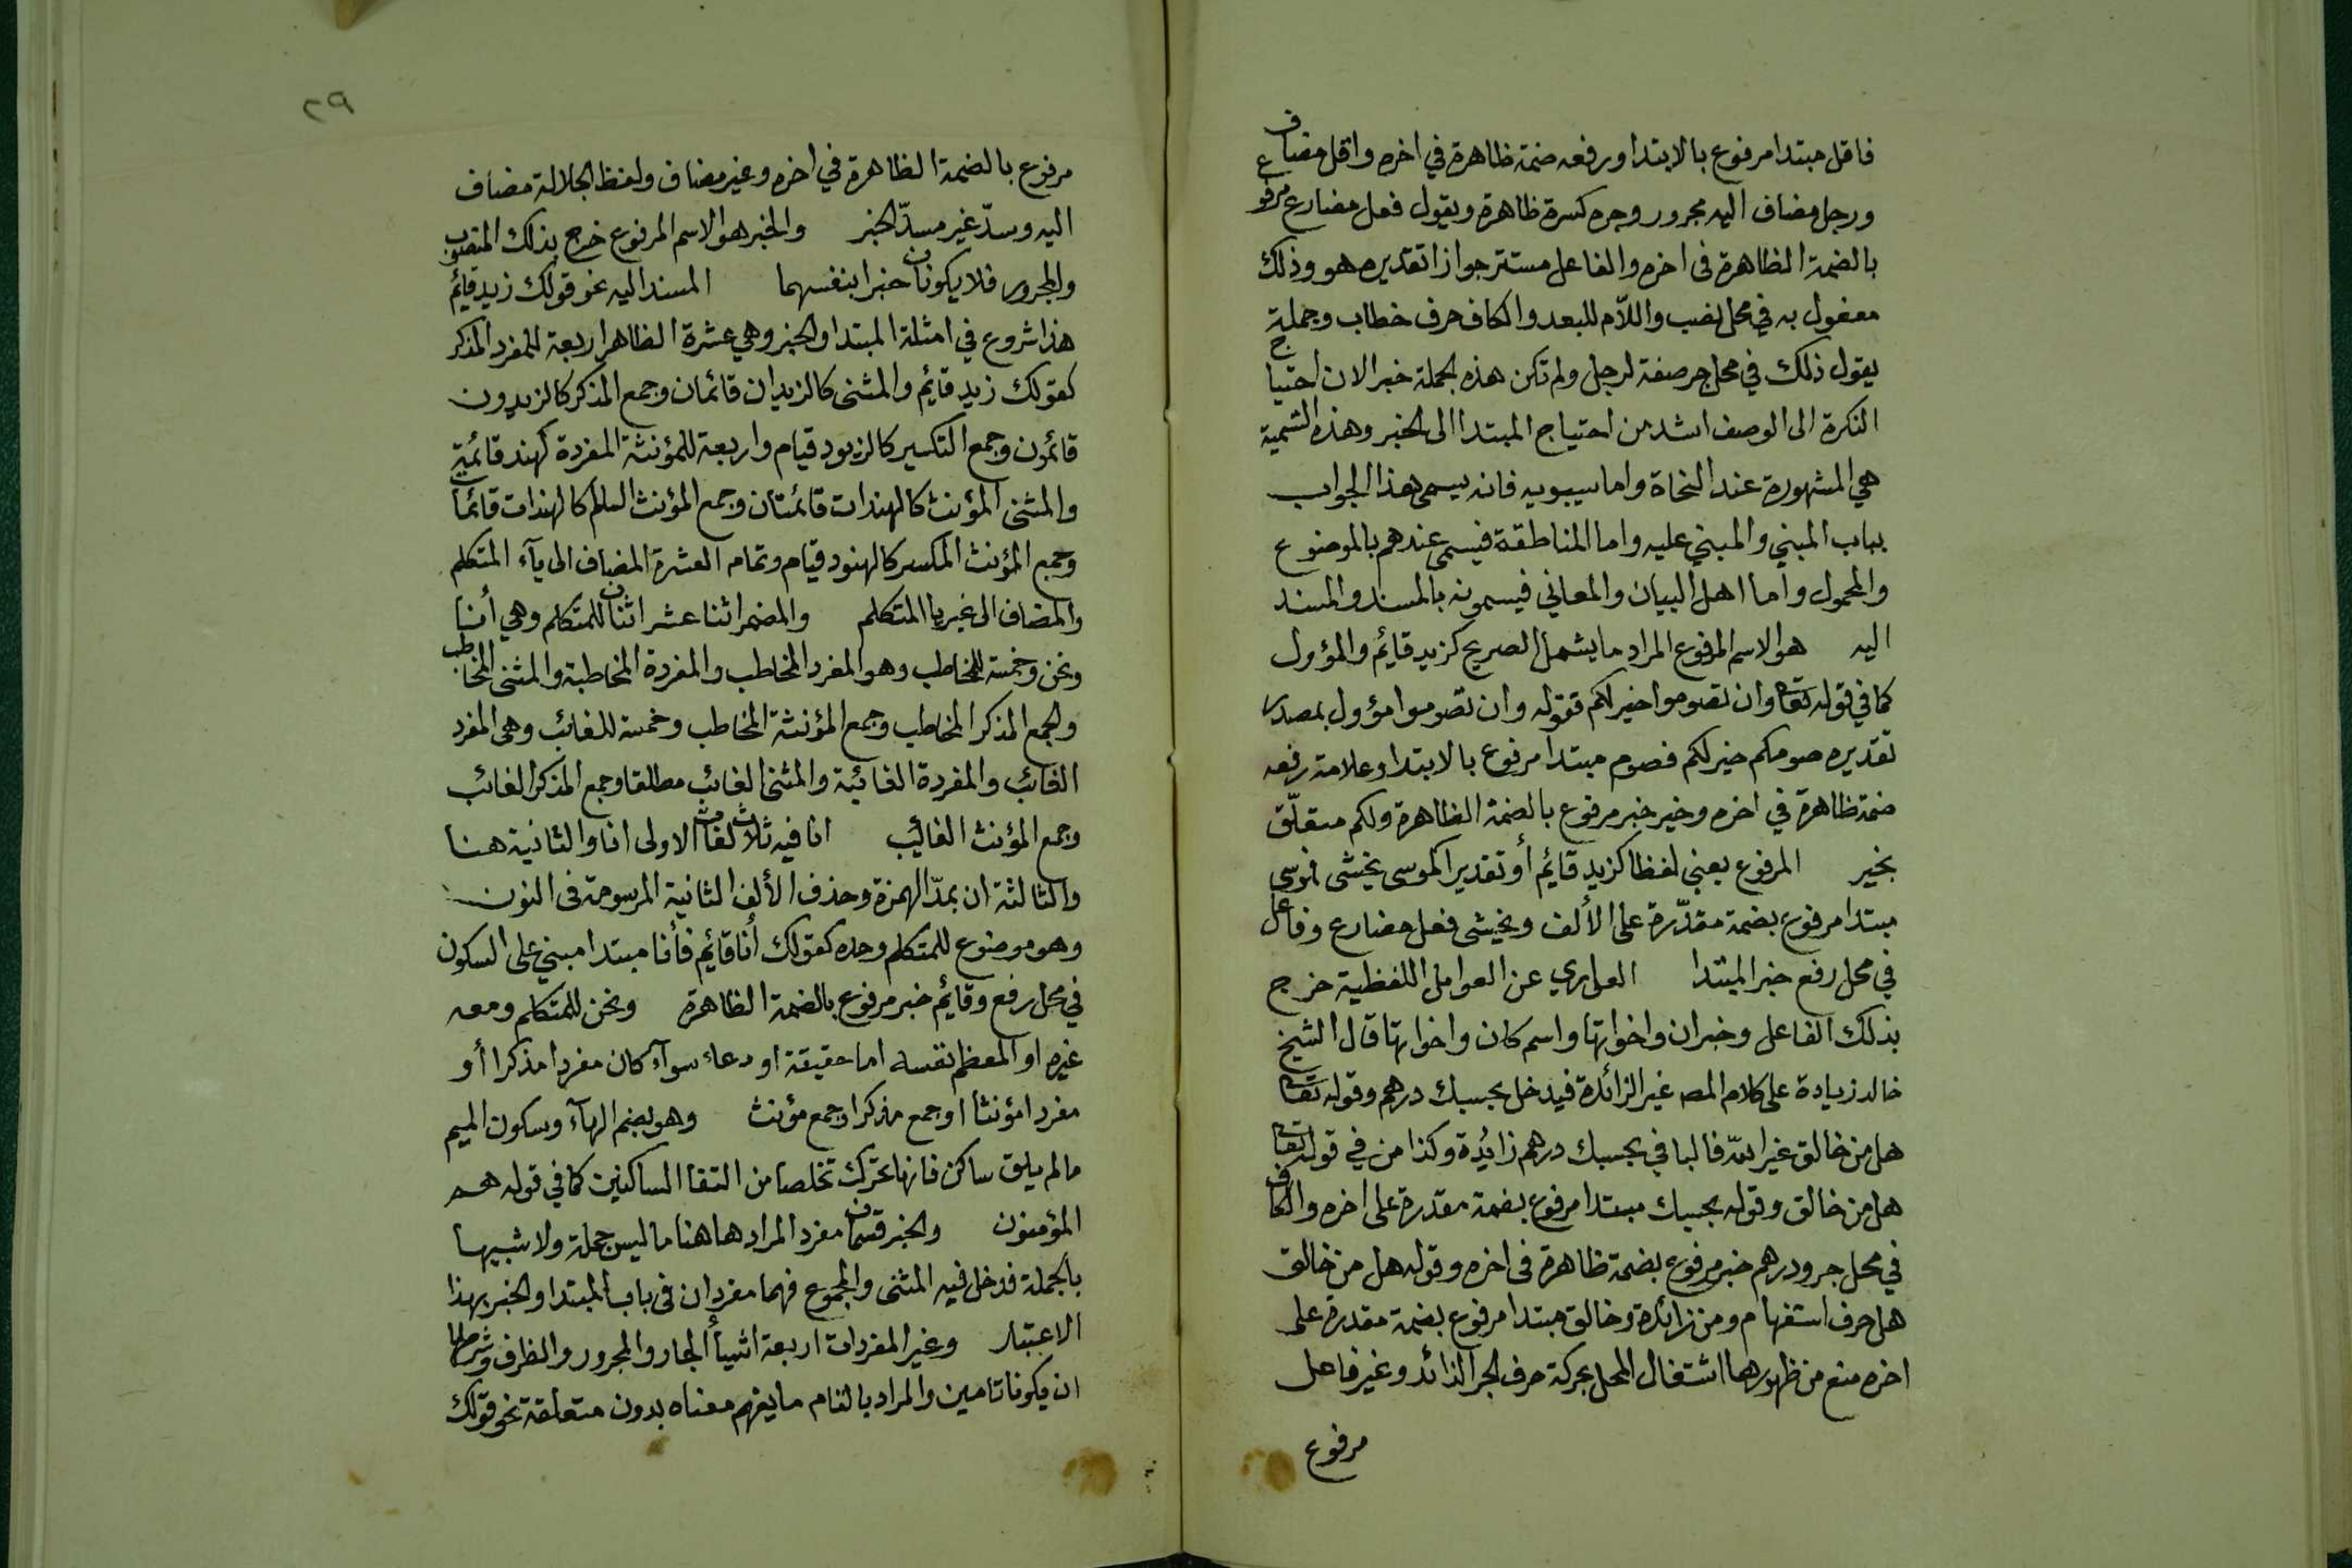 فاقل مبتدا مرفوع بالابتدا ورفعه ضمة ظاهرة في اخره واقل مضاف
ورجل مضاف اليه مجرور وجره كسرة ظاهرة ويقول فعل مضارع مرفوع
بالضمة الظاهرة فى اخره والفاعل مستتر جوازا تقديره هو وذلك
مفعول به في محل نصب واللّام للبعد والكاف حرف خطاب وجملة
يقول ذلك في محل جر صفة لرجل ولم تكن هذه الجملة خبرا لان احتياج
النكرة الى الوصف اشد من احتياج المبتدا الى الخبر وهذه التسمية
هي المشهورة عند النحاة واما سيبويه فانه يسمى هذا الجواب
بباب المبني والمبني عليه واما المناطقة فيسمى عندهم بالموضوع
والمحمول واما اهل البيان والمعاني فيسمونه بالمسند والمسند
اليه هو الاسم المرفوع المراد ما يشمل الصريح كزيد قائم والمؤول
كما في قوله تعا وان تصوموا خير لكم فقوله وان تصوموا مؤول بمصدر
تقديره صومكم خير لكم فصوم مبتدا مرفوع بالابتدا وعلامة رفعه
ضمة ظاهرة في اخره وخير خبر مرفوع بالضمة الظاهرة ولكم متعلّق
بخير المرفوع يعنى لفظا كزيد قائم أو تقديرا كموسى يخشى فموسى
مبتدا مرفوع بضمة مقدّرة على الألف ويخشى فعل مضارع وفاعل
في محل رفع خبر المبتدا العارى عن العوامل اللفظية خرج
بذلك الفاعل وخبر ان واخواتها واسم كان واخواتها قال الشيخ
خالد زيادة على كلام المص غير الزائدة فيدخل بحسبك درهم وقوله تعا
هل من خالق غير الله فالبا في بحسبك درهم زائدة وكذا من في قوله تعا
هل من خالق وقوله بحسبك مبتدا مرفوع بضمة مقدرة على اخره والكاف
في محل جر ودرهم خبر مرفوع بضمة ظاهرة فى اخره وقوله هل من خالق
هل حرف استفهام ومن زائدة وخالق مبتدا مرفوع بضمة مقدرة على
اخره منع من ظهورها اشتغال المحل بحركة حرف الجر الزائد وغير فاعل
مرفوع
٢٩
مرفوع بالضمة الظاهرة في اخره وغير مضاف ولفظ الجلالة مضاف
اليه وسدّ غير مسدّ الخبر والخبر هو الاسم المرفوع خرج بذلك المنصوب
والمجرور فلا يكونان خبرا بنفسهما المسند اليه نحو قولك زيد قائم
هذا شروع في امثلة المبتدا والخبر وهي عشرة الظاهر اربعة للمفرد المذكر
كقولك زيد قائم والمثنى كالزيدان قائمان وجمع المذكر كالزيدون
قائمون وجمع التكسير كالزيود قيام واربعة للمؤنثة المفردة كهند قائمة
والمثنى المؤنث كالهندات قائمتان وجمع المؤنث السلم كالهندات قائمات
وجمع المؤنث المكسر كالهنود قيام وتمام العشرة المضاف الى يآء المتكلم
والمضاف الى غير يا المتكلم والمضمر اثنا عشر اثنان للمتكلم وهي أنا
ونحن وخمسة للمخاطب وهو المفرد المخاطب والمفردة المخاطبة والمثنى المخاطب
والجمع المذكر المخاطب وجمع المؤنثة المخاطب وخمسة للغائب وهى المفرد
الغائب والمفردة الغائبة والمثنى الغائب مطلقا وجمع المذكر الغائب
وجمع المؤنث الغائب انا فيه ثلاث لغات الاولى انا والثانية هنا
والثالثة ان بمدّ الهمزة وحذف الألف الثانية المرسومة فى النون
وهو موضوع للمتكلم وحده كقولك أنا قائم فأنا مبتدا مبني على السكون
في محل رفع وقائم خبر مرفوع بالضمة الظاهرة ونحن للمتكلم ومعه
غيره او المعظم نفسه اما حقيقة او دعاء سوآء كان مفردا مذكرا أو
مفردا مؤنثا او جمع مذكر او جمع مؤنث وهو بضم الهآء وسكون الميم
ما لم يلق ساكن فانها تحرك تخلصا من التقا الساكنين كما في قوله هم
المؤمنون والخبر قسمان مفرد المراد ها هنا ما ليس جملة ولا شبيها
بالجملة فدخل فيه المثنى والمجموع فهما مفردان فى باب المبتدا والخبر بهذا
الاعتبار وغير المفردات اربعة اشيأ الجار والمجرور والظرف وشرطهما
ان يكونا تامين والمراد بالتام ما يفهم معناه بدون متعلقة نحو قولك